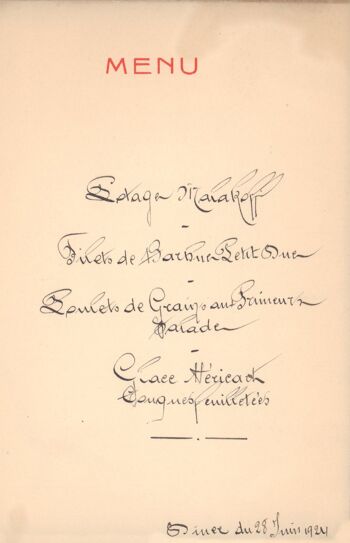 MENU
Potage Malakoff
Filets de Barbue Petit Duc
Poulets de Grains aux Primeurs
Salade
Glace Héricart
Langues feuilletées
Diner du 28 Juin 1924